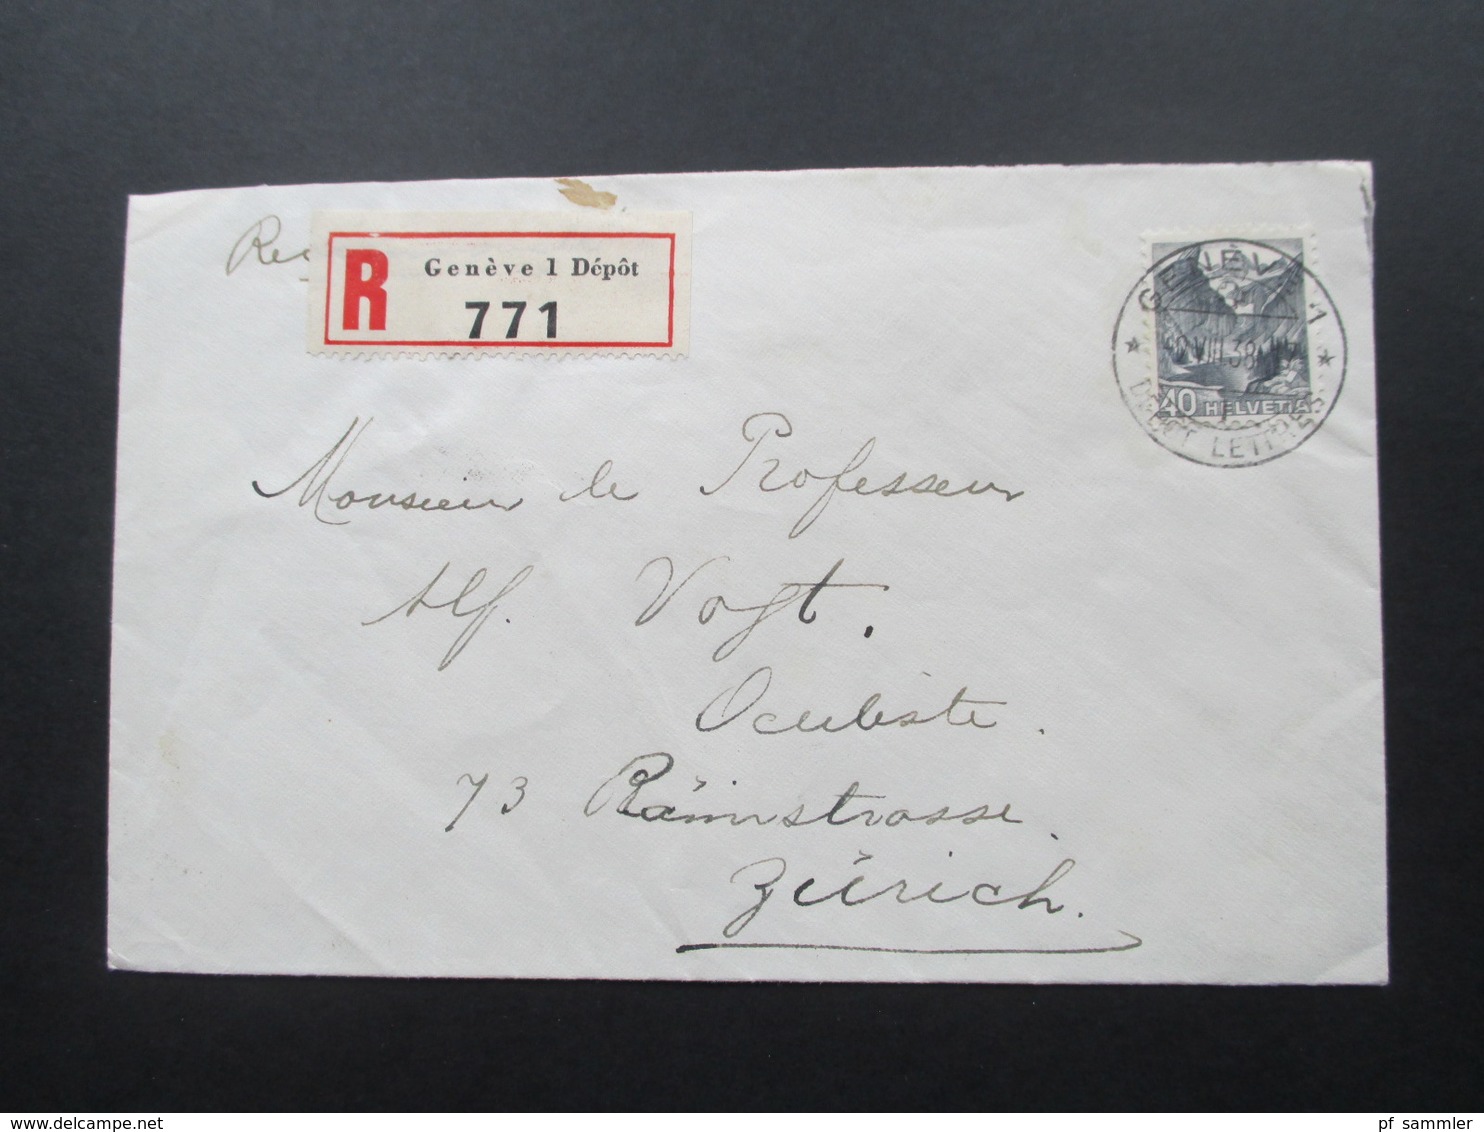 R Genève 1 Dépôt
771
GENÈVE 1
VIII.38
40 HELVETIA
DÉPÔT LETTRES
Monsieur le Professeur
Alf. Vogt.
Oculiste.
73 Rämistrasse.
Zürich.
www.delcampe.net
pf_sammler